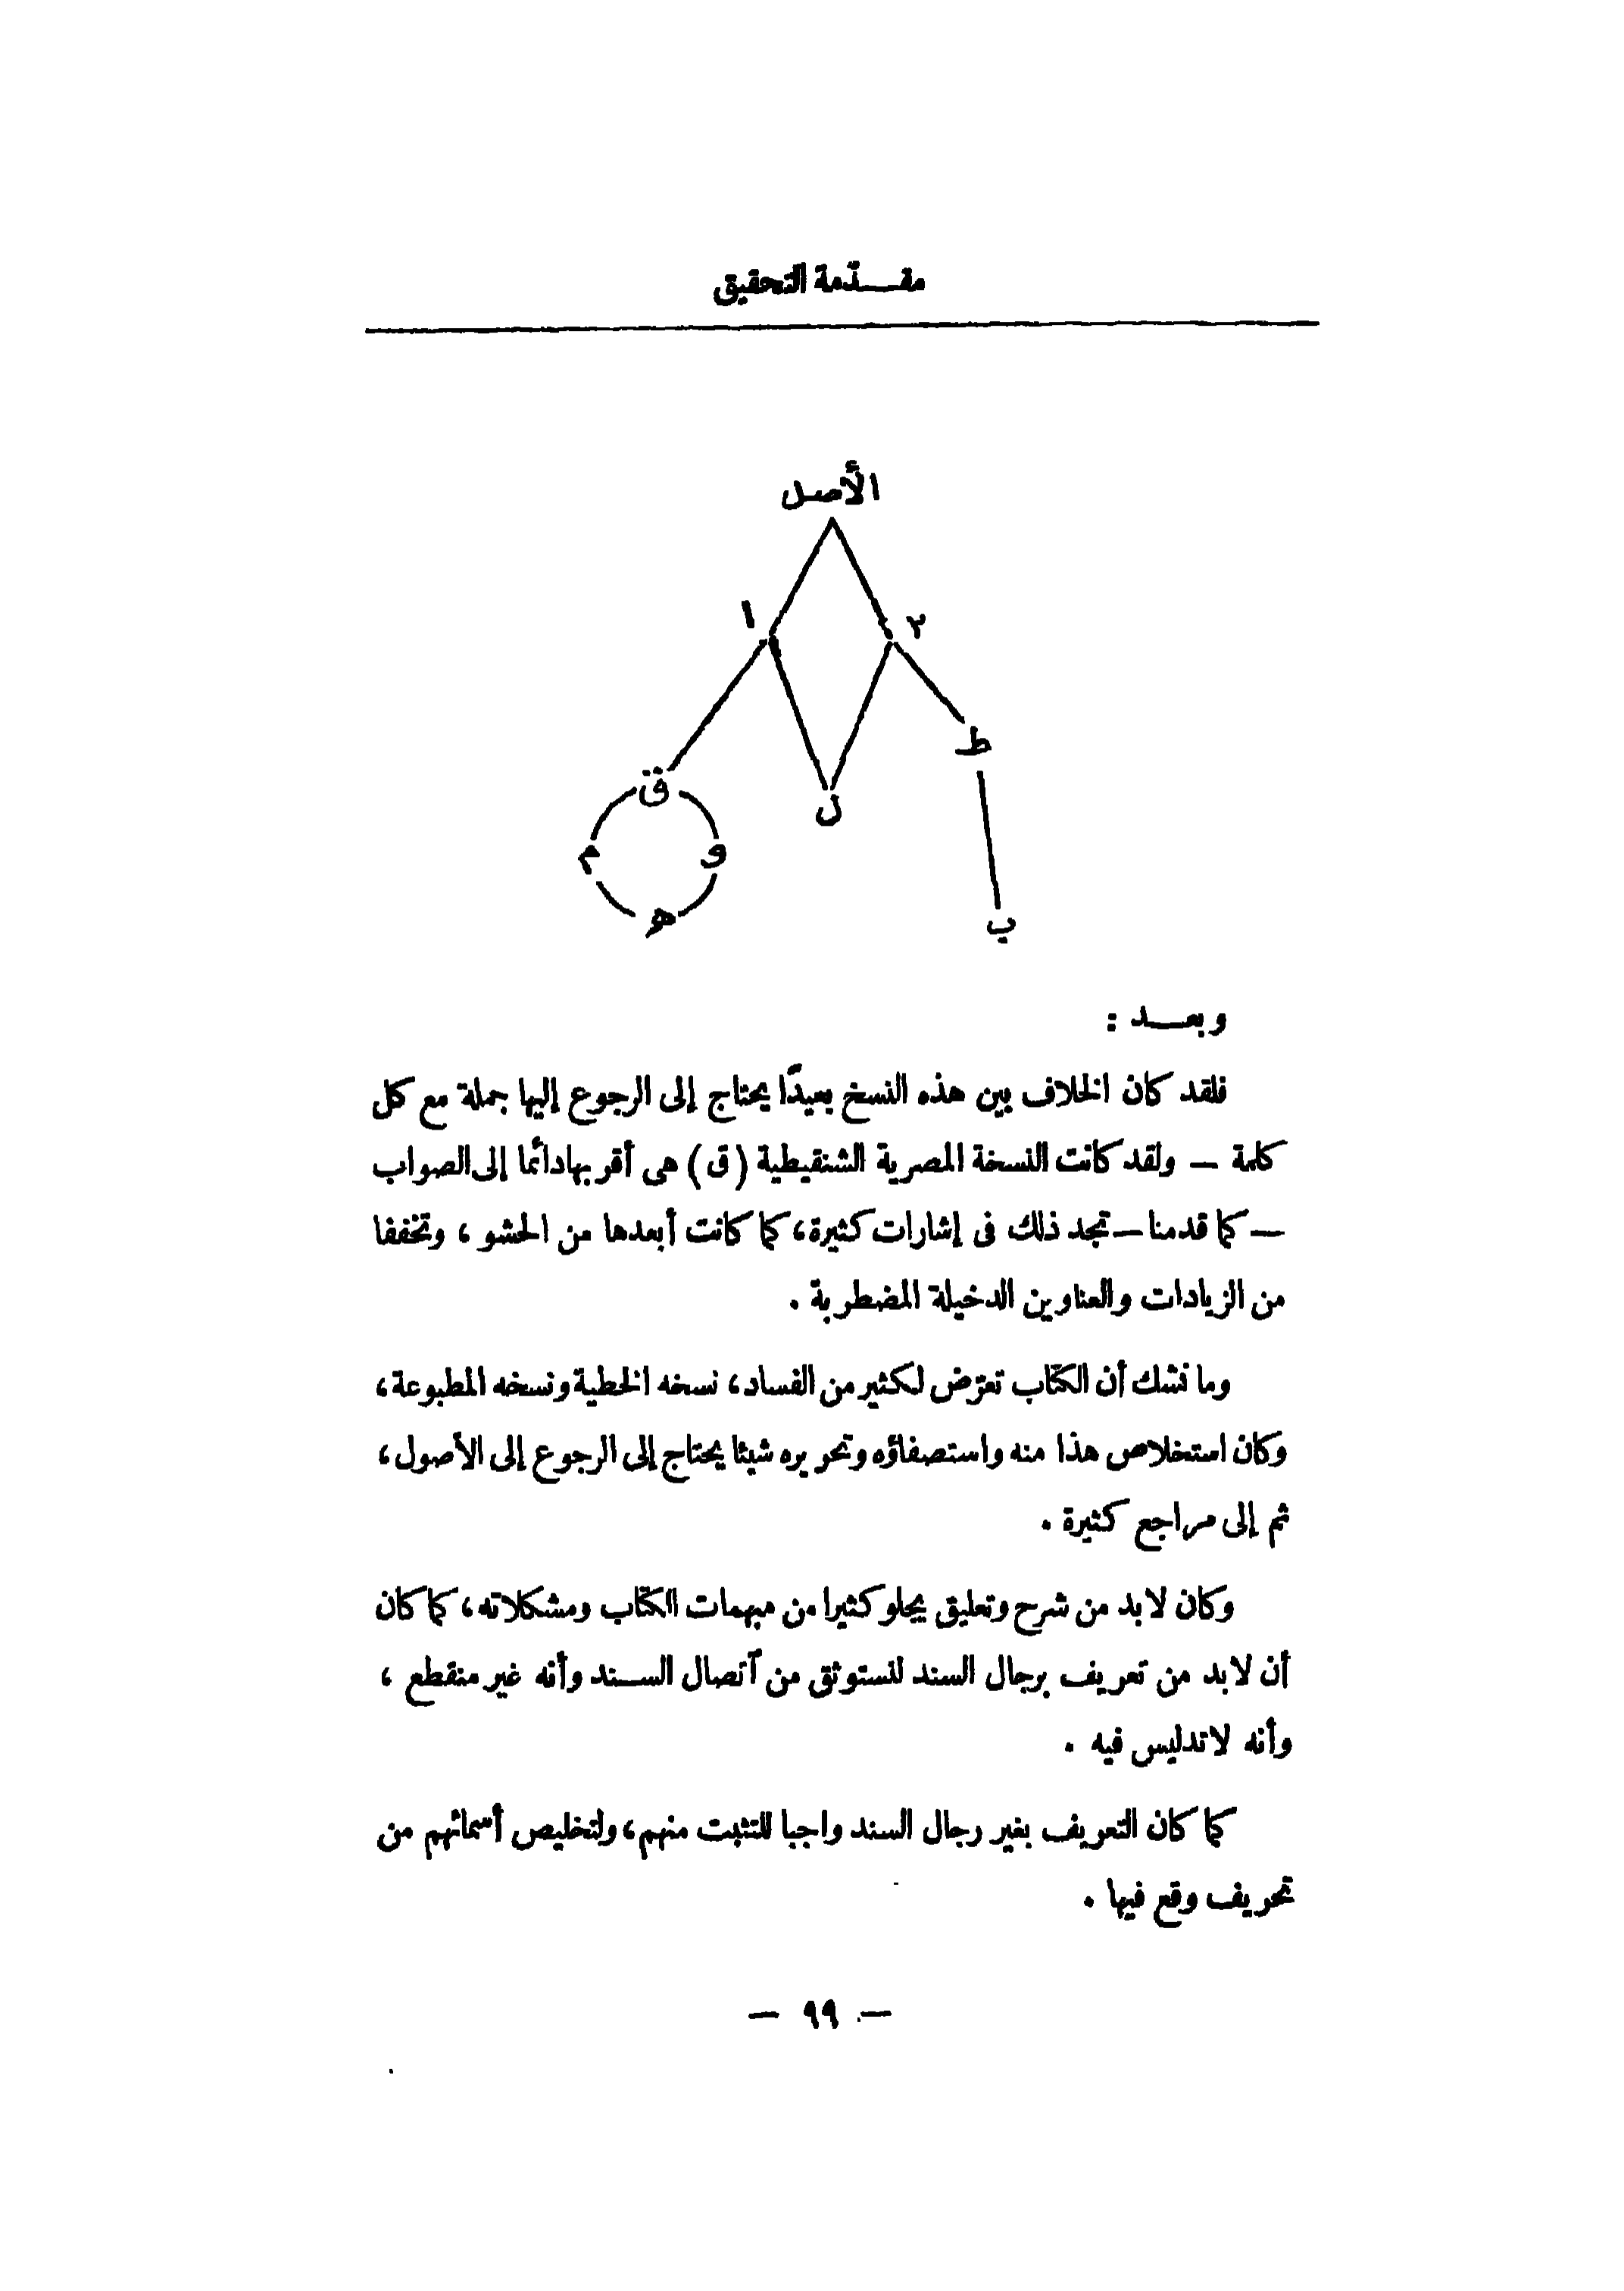 مقـــدّمة التحقيق
الأصل
١
٢
ط
ق
ل
م
و
هو
ب
وبعـــد :
فلقد كان الخلاف بين هذه النسخ بعيدًا يحتاج إلى الرجوع إليها جملة مع كل
كلمة — ولقد كانت النسخة المصرية الشنقيطية (ق) هى أقربها دائما إلى الصواب
— كما قدمنا — تجد ذلك فى إشارات كثيرة، كما كانت أبعدها من الحشو ، وتخففا
من الزيادات والعناوين الدخيلة المضطربة .
وما نشك أن الكتاب تعرّض لكثير من الفساد، نسخه الخطية ونسخه المطبوعة،
وكان استخلاص هذا منه واستصفاؤه وتحريره شيئا يحتاج إلى الرجوع إلى الأصول،
ثم إلى مراجع كثيرة .
وكان لابد من شرح وتعليق يجلو كثيرا من مبهمات الكتاب ومشكلاته، كما كان
أن لابد من تعريف برجال السند لنستوثق من آتصال الســند وأنه غير منقطع ،
وأنه لاتدليس فيه .
كما كان التعريف بغير رجال السند واجبا للتثبت منهم، ولتخليص أسمائهم من
تحريف وقع فيها .
— ٩٩ —